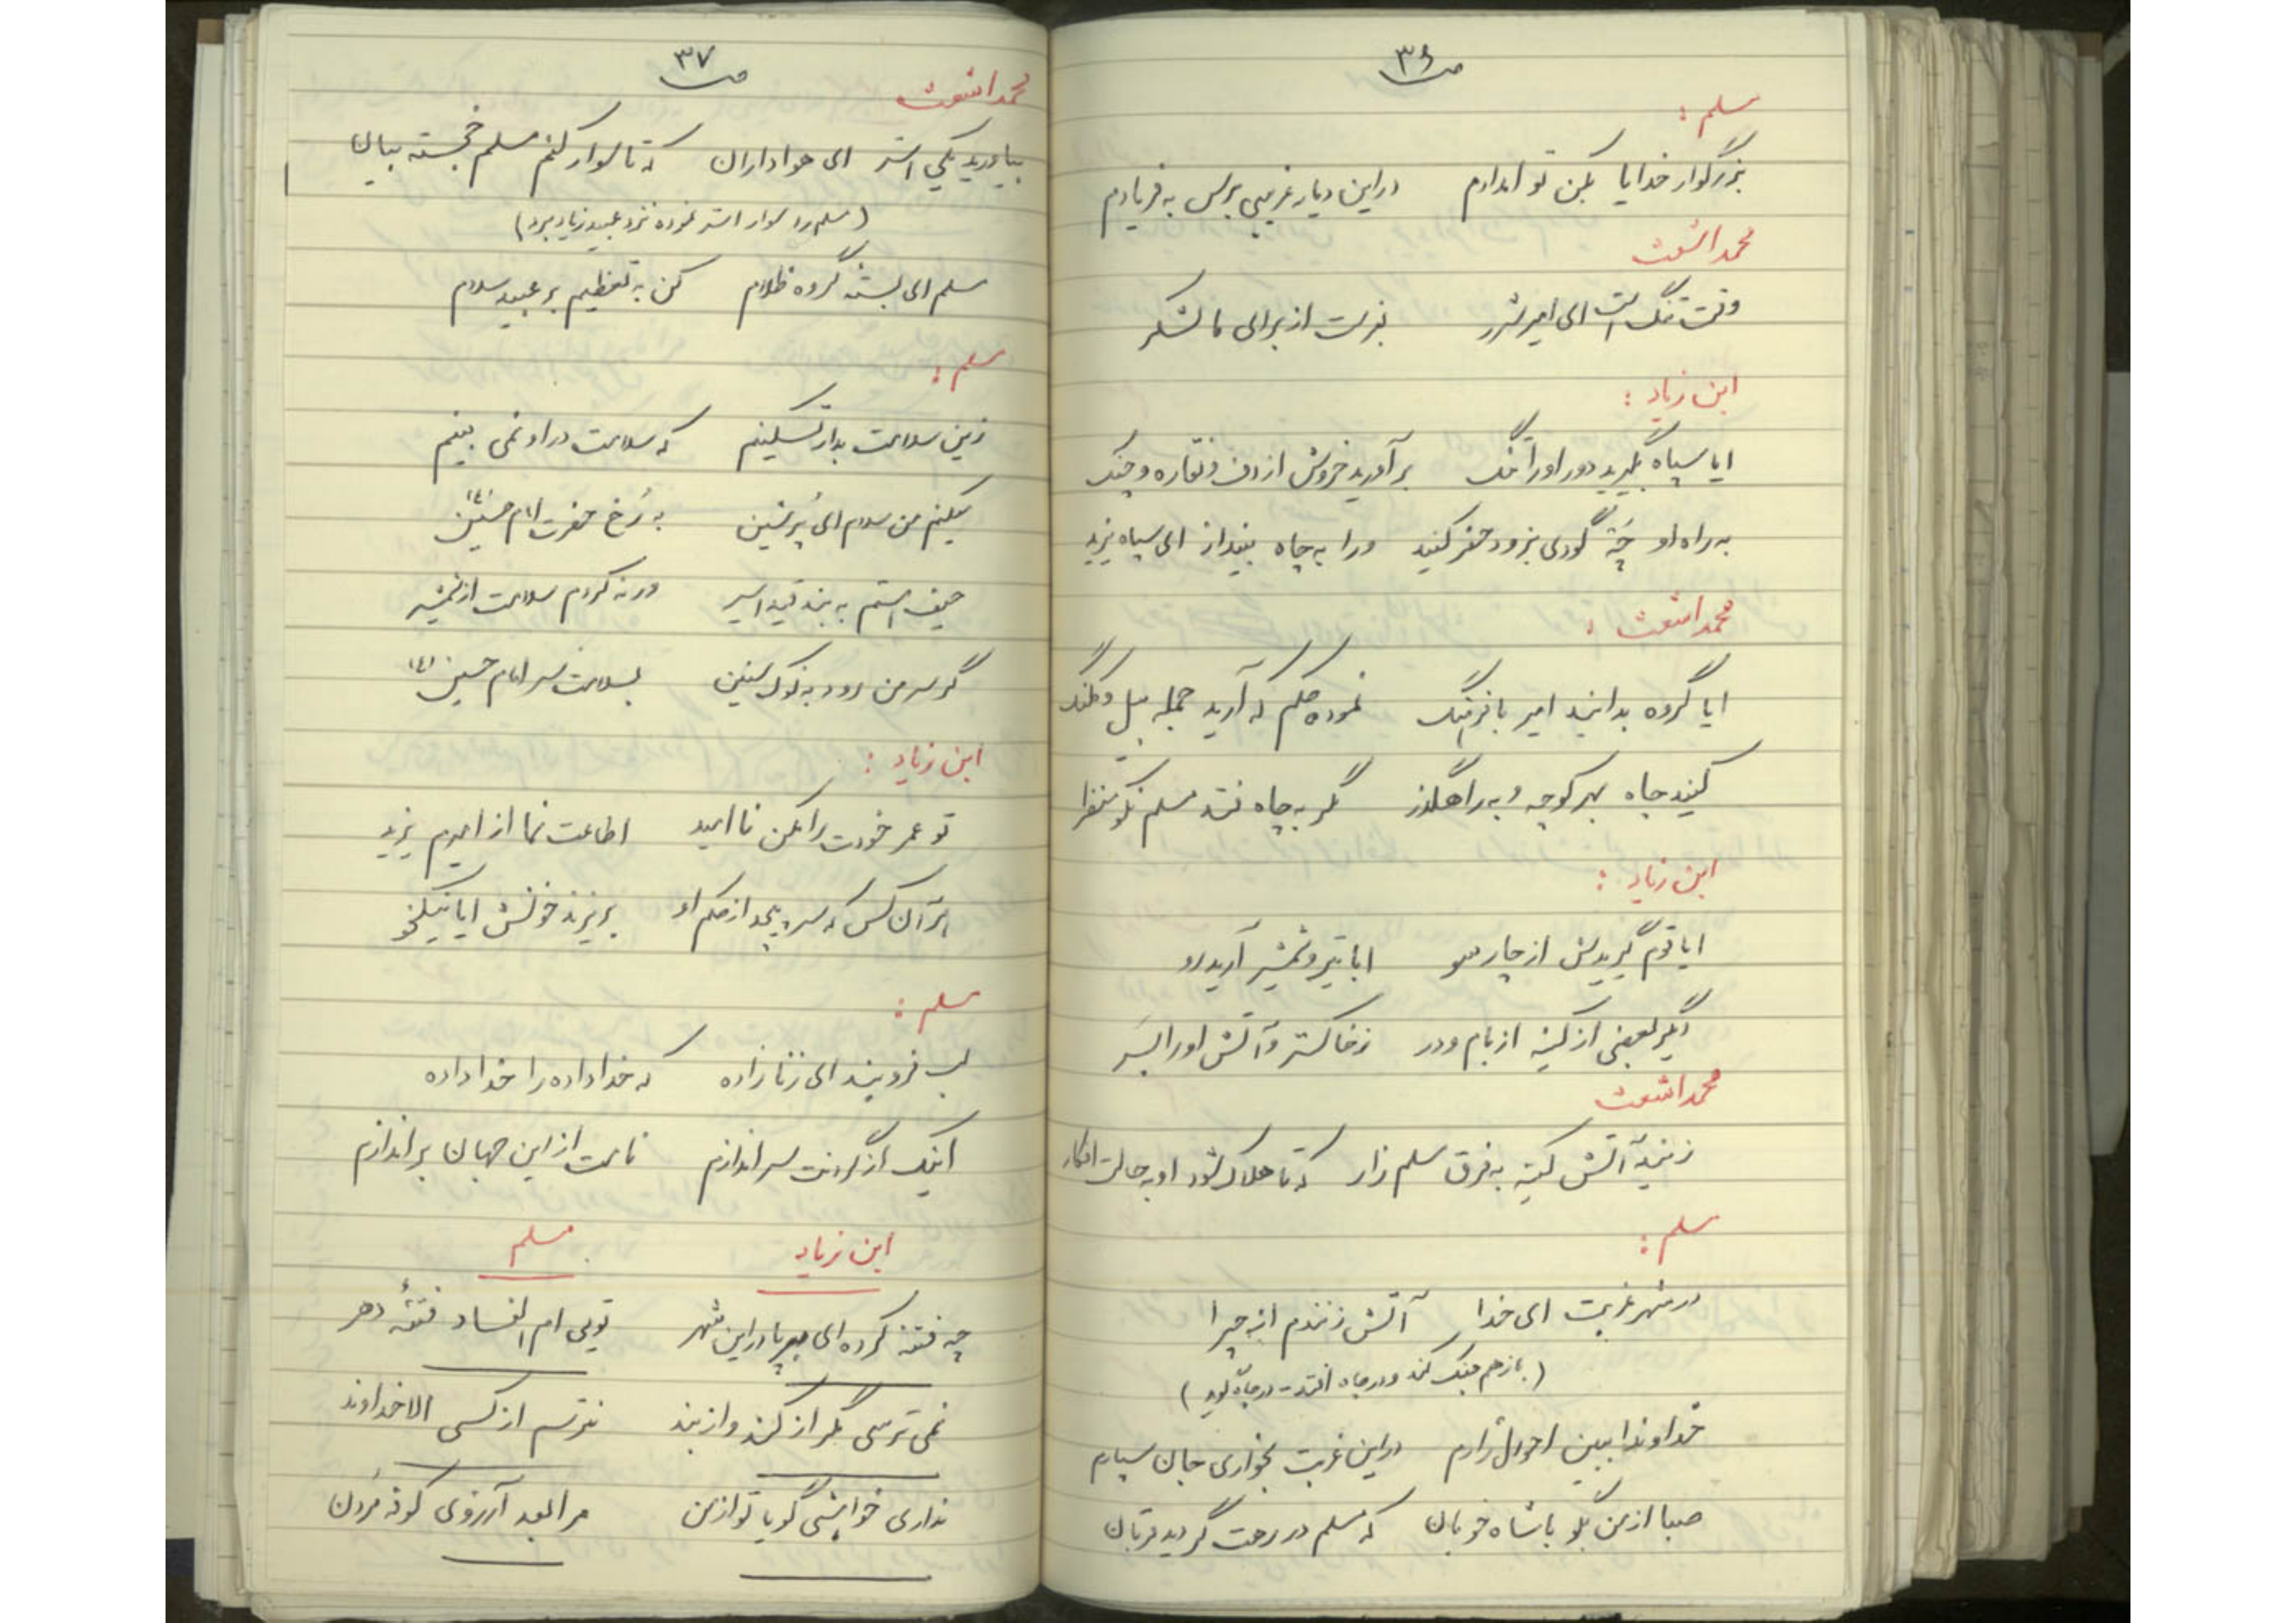 ص ۳۶
مسلم :
بزرگوار خدایا بکن تو امدادم دراین دیار غریبی برس به فریادم
محمد اشعث
وقت تنگ است ای امیر شرر بفرست از برای ما لشکر
ابن زیاد :
ایا سپاه بگیرید دور او را تنگ برآورید خروش از دف و نقاره و چنگ
به راه او چَهِ گودی بزود حفر کنید ورا به چاه بیندازـ ای سپاه یزید
محمد اشعث :
ایا گروه بدانید امیر با فرهنگ نموده حکم که آرید جمله بیل و کلنگ
کنید چاه بهر کوچه و به راهگذر مگر به چاه فتد مسلم نکو منظر
ابن زیاد :
ایا قوم گیریدش از چارسو ابا تیر و شمشیر آرید رو
دگر بعضی از کینه از بام و در ز خاکستر و آتش او را بسر
محمد اشعث
زنید آتش کینه به فرق مسلم زار که تا هلاک شود او به حالت افکار
مسلم :
در شهر غربت ای خدا آتش زنندم از چرا
(بازهم جنگ کند و در چاه افتد - در چاه گوید)
خداوندا ببین احوال زارم دراین غربت بخواری جان سپارم
صبا از من بگو با شاه خوبان که مسلم در رهت گردید قربان
ص ۳۷
محمد اشعث
بیاورید یکی استر ای هواداران که تا سوار کنم مسلم خجسته بیان
(مسلم را سوار استر نموده نزد عبید زیاد برد)
مسلم ای بسته گروه ظلام کن به تعظیم بر عبید سلام
مسلم :
زین سلامت بدار تسکینم که سلامت در او نمی بینم
میکنم من سلام ای پُرشین به رُخ حضرت امام حسین (ع)
حیف استم به بند قید اسیر ورنه کردم سلامت از شمشیر
گر سر من رود به نوک سنین بسلامت سر امام حسین (ع)
ابن زیاد :
تو عمر خودت را مکن ناامید اطاعت نما از امیرم یزید
هر آن کس که سر پیچد از حکم او بریزند خونش ایا نیکخو
مسلم :
لب فرو بند ای زنازاده که خدا داده را خدا داده
اینک از گردنت سر اندازم نامت از این جهان براندازم
ابن زیاد مسلم
چه فتنه کرده ای برپا در این شهر تویی ام الفساد فتنهٔ دهر
نمی ترسی مگر از کُند و از بند نترسم از کسی الا خداوند
نداری خواهشی گویا تو از من مرا بود آرزوی کوفه مُردن